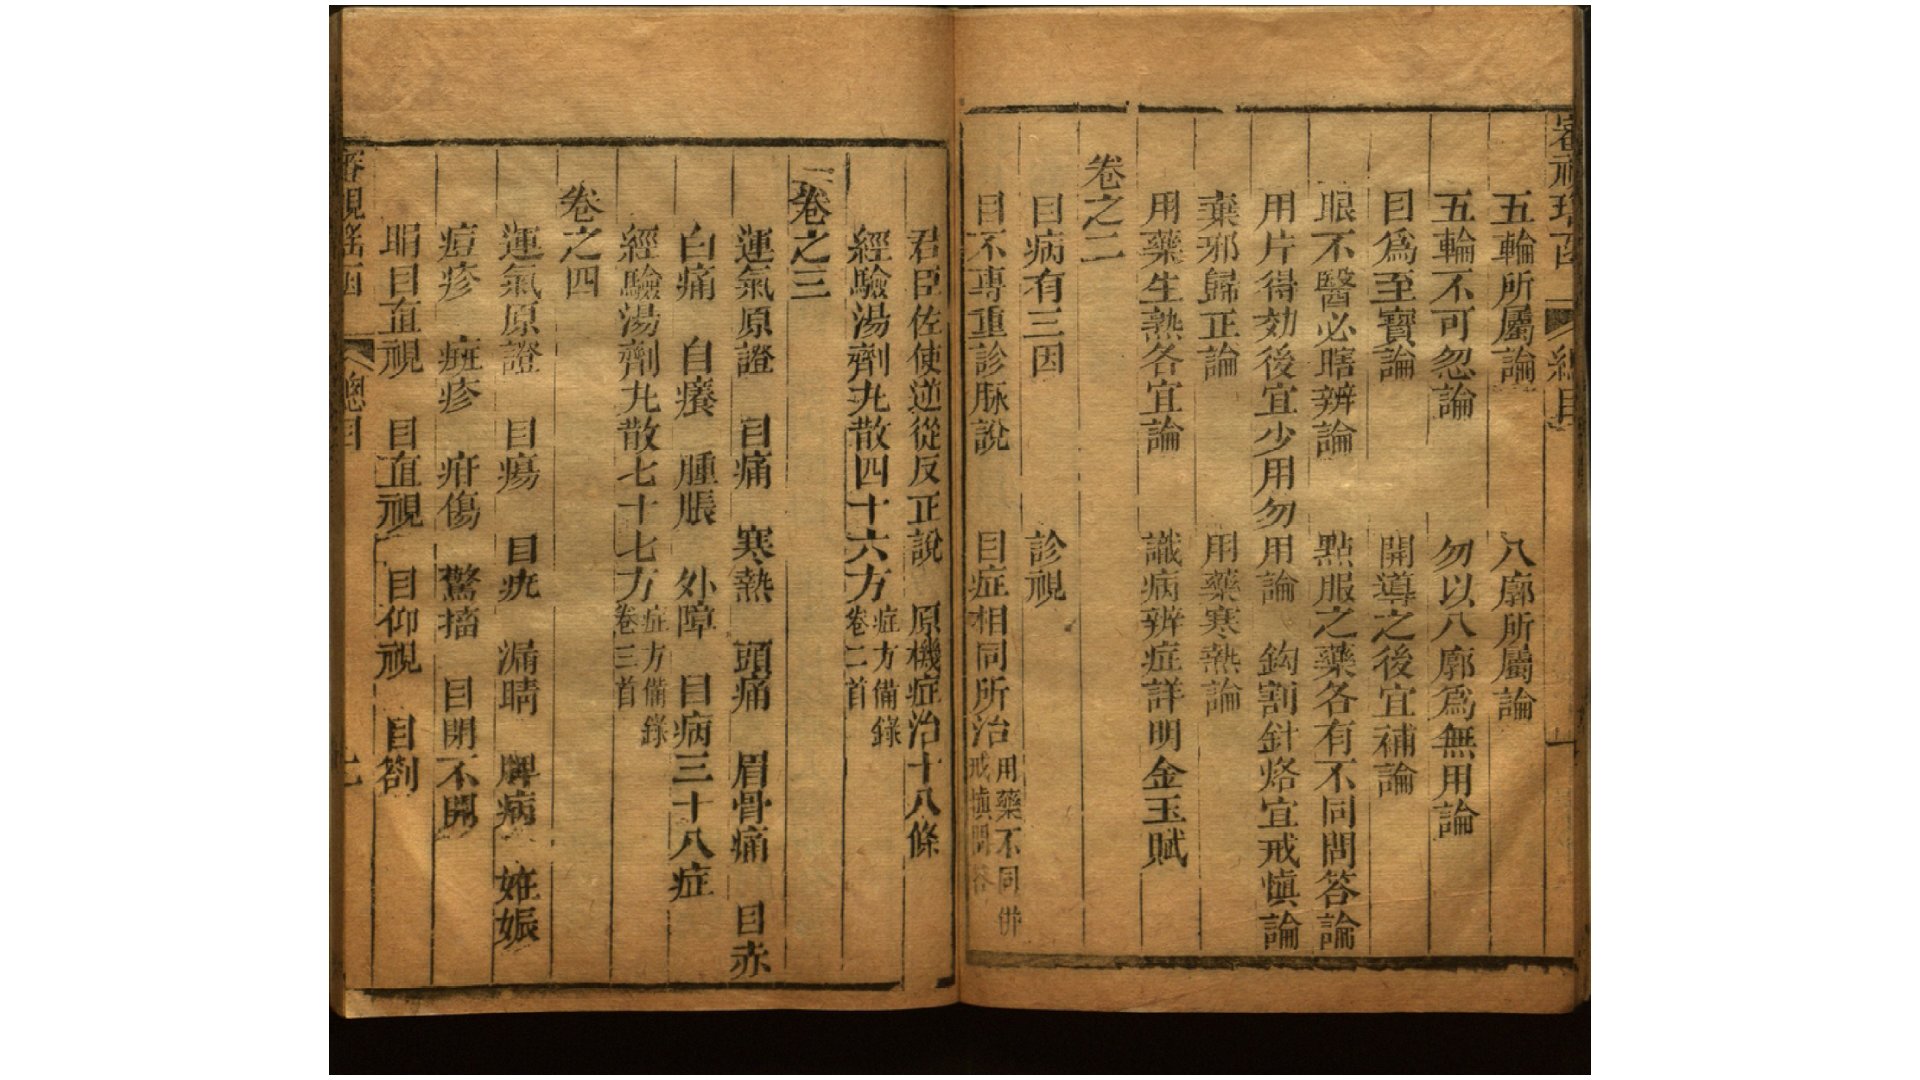 五輪所屬論 八廓所屬論
五輪不可忽論 勿以八廓爲無用論
目爲至寶論 開導之後宜補論
眼不醫必瞎辨論 點服之藥各有不同問答論
用片得効後宜少用勿用論 鈎割針烙宜戒愼論
棄邪歸正論 用藥寒熱論
用藥生熟各宜論 識病辨症詳明金玉賦
卷之二
目病有三因 診視
目不專重診脉說 目症相同所治用藥不同併戒愼問答
君臣佐使逆從反正說 原機症治十八條
經驗湯劑丸散四十六方症方備錄卷二首
卷之三
運氣原證 目痛 寒熱 頭痛 眉骨痛 目赤
白痛 目癢 腫脹 外障 目病三十八症
經驗湯劑丸散七十七方症方備錄卷三首
卷之四
運氣原證 目瘍 目疣 漏睛 脾病 妊娠
痘疹 疹 疳傷 驚搐 目閉不開
目直視 目直視 目仰視 目劄
審視瑤函 總目